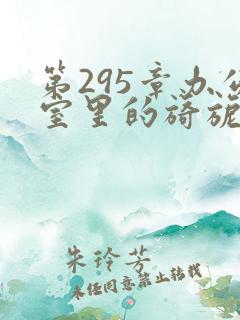 第295章办公
室里的旖旎
朱玲芳
未经同意禁止转载